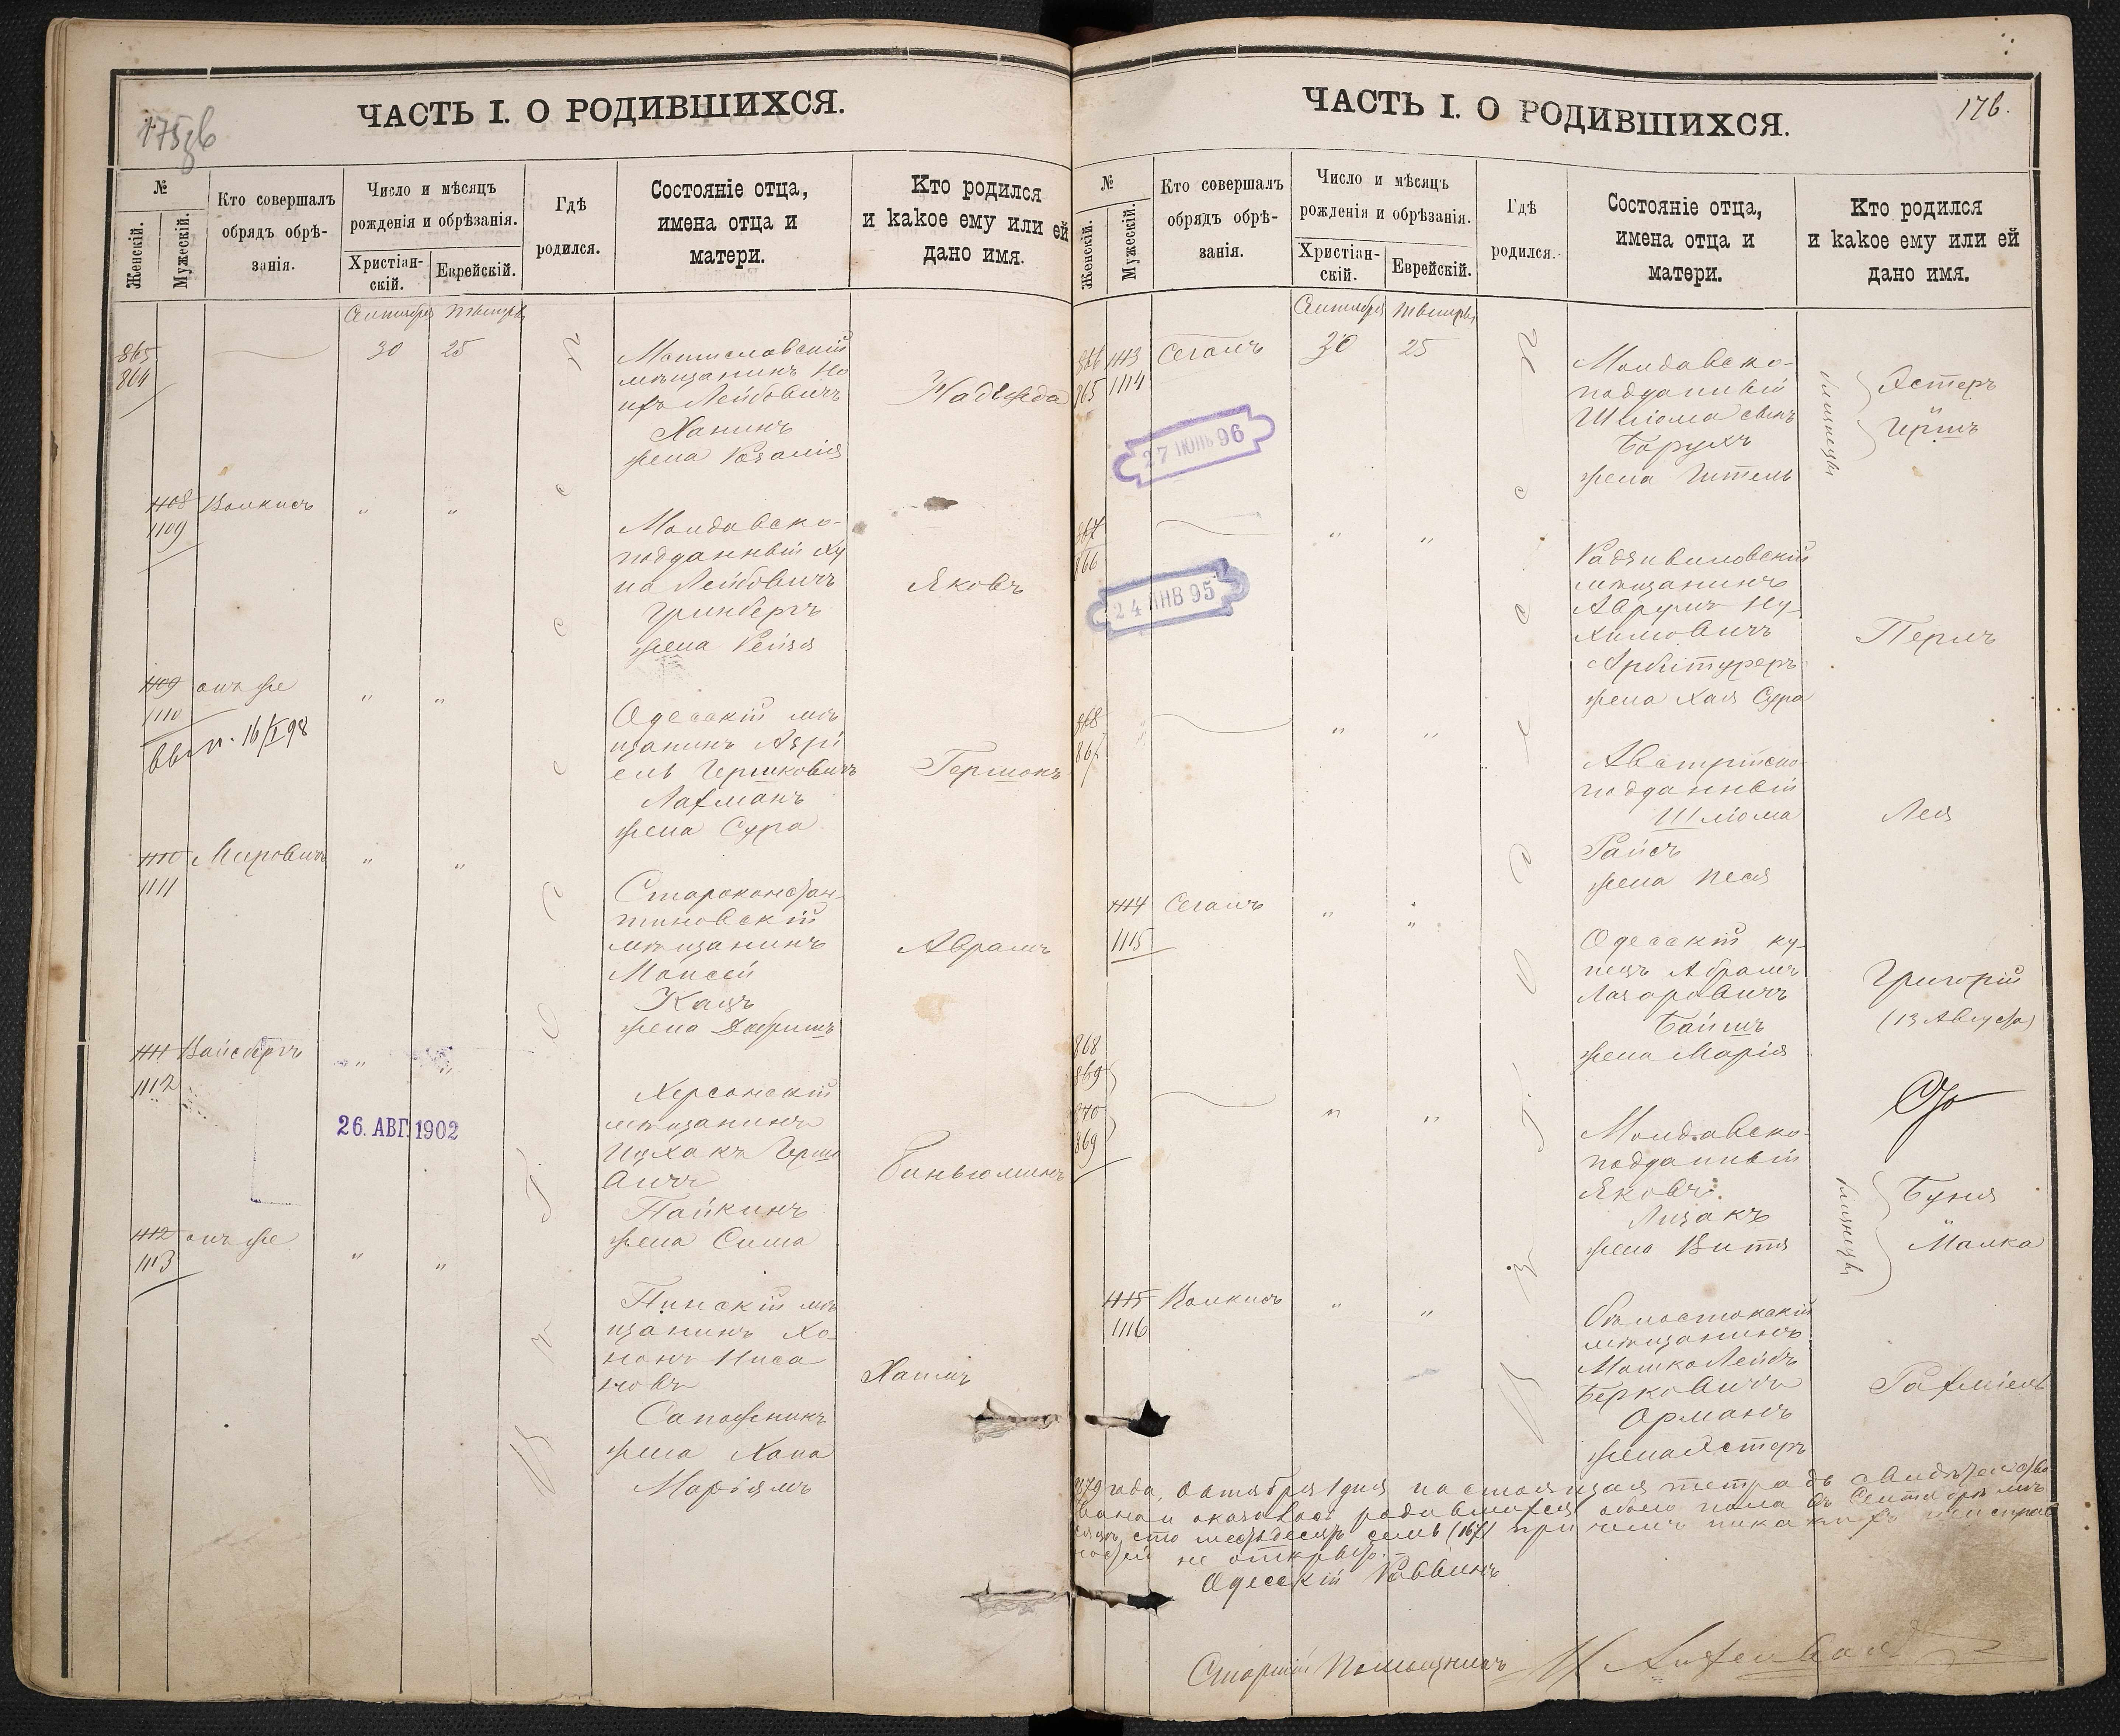 175об
ЧАСТЬ I. О РОДИВШИХСЯ.
№
Женскій.
Мужескій.
Кто совершалъ
обрядъ обрѣ-
занія.
Число и мѣсяцъ
рожденія и обрѣзанія.
Христіан-
скій.
Еврейскій.
Гдѣ
родился.
Состояніе отца,
имена отца и
матери.
Кто родился
и какое ему или ей
дано имя.
Сентября
865
864
30
25
мѣщанинъ
Лейбовичъ
Ханинъ
жена Розалія
Надежда
1108
1109
Волкисъ
" "
Молдавско-
подданный Ху
на Лейбовичъ
Гринбергъ
жена Рейзя
Яковъ
1109
1110
онъ же
" "
вып. 16/I 98
Одесскій мѣ
щанинъ Азрі
ель Гершковичъ
Лахманъ
жена Сура
Гершонъ
1110
1111
" "
Староконстан-
тиновскій
мѣщанинъ
Моисей
Кацъ
жена Добришъ
Аврамъ
1111
1112
Вайсбергъ
" "
26. АВГ. 1902
Херсонскій
мѣщанинъ
Ицхакъ Герше
вичъ
Пайкинъ
жена Сима
Биньюминъ
1112
1113
онъ же
" "
Пинскій мѣ
щанинъ Хо-
нонъ Ниса
новъ
Сапожникъ
жена Хана
Марьямъ
Хаимъ
176.
ЧАСТЬ I. О РОДИВШИХСЯ.
№
Женскій.
Мужескій.
Кто совершалъ
обрядъ обрѣ-
занія.
Число и мѣсяцъ
рожденія и обрѣзанія.
Христіан-
скій.
Еврейскій.
Гдѣ
родился.
Состояніе отца,
имена отца и
матери.
Кто родился
и какое ему или ей
дано имя.
Сентября
866 1113
865 1114
Сегалъ
30
25
27 ІЮНЬ 96
Молдавско-
подданный
Шліома сынъ
Борухъ
жена Гитель
близнецы
Эстеръ
и
Иршъ
867
866
" "
24 ЯНВ 95
Радзивиловскій
мѣщанинъ
Аврумъ Ну-
химовичъ
Арбитуреръ
жена Хая Сура
Перль
868
867
" "
Австрійско-
подданный
Шліома
Райсъ
жена Песя
Лея
1114
1115
Сегалъ
" "
Одесскій ку-
пецъ Абрамъ
Лазаровичъ
Байшъ
жена Марія
Григорій
(13 Августа)
868
869
870
869
" "
Молдавско-
подданный
Яковъ
Лизакъ
жена Витя
близнецы
Буня
и
Малка
1115
1116
Волкисъ
" "
Бѣлостокскій
мѣщанинъ
Мошко Лейбъ
Берковичъ
Орманъ
жена Эстеръ
Рахміель
1879 года, Октября 1 дня настоящая тетрадь свидѣтельство
вана и оказалось родившихся обоего пола въ Сентябрѣ мѣ
сяцѣ, сто шестьдесятъ семь (167) при чемъ никакихъ неисправ
ностей не открыто.
Одесскій Раввинъ
Старшій Помощникъ